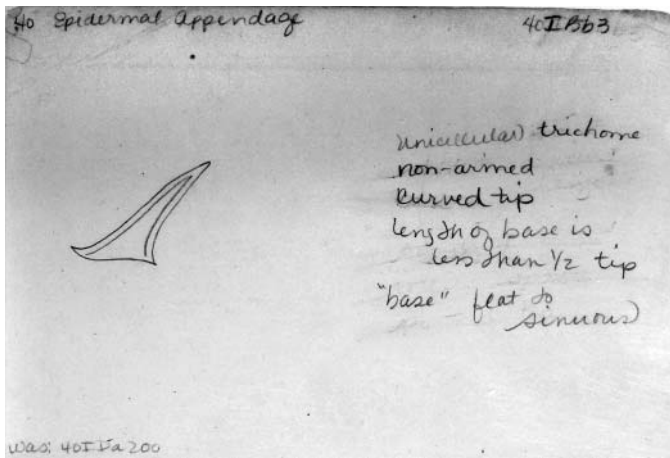 40 Epidermal Appendage
40IBb3
unicellular trichome
non-armed
curved tip
length of base is
less than 1/2 tip
"base" flat to
sinuous
was: 40IDa200